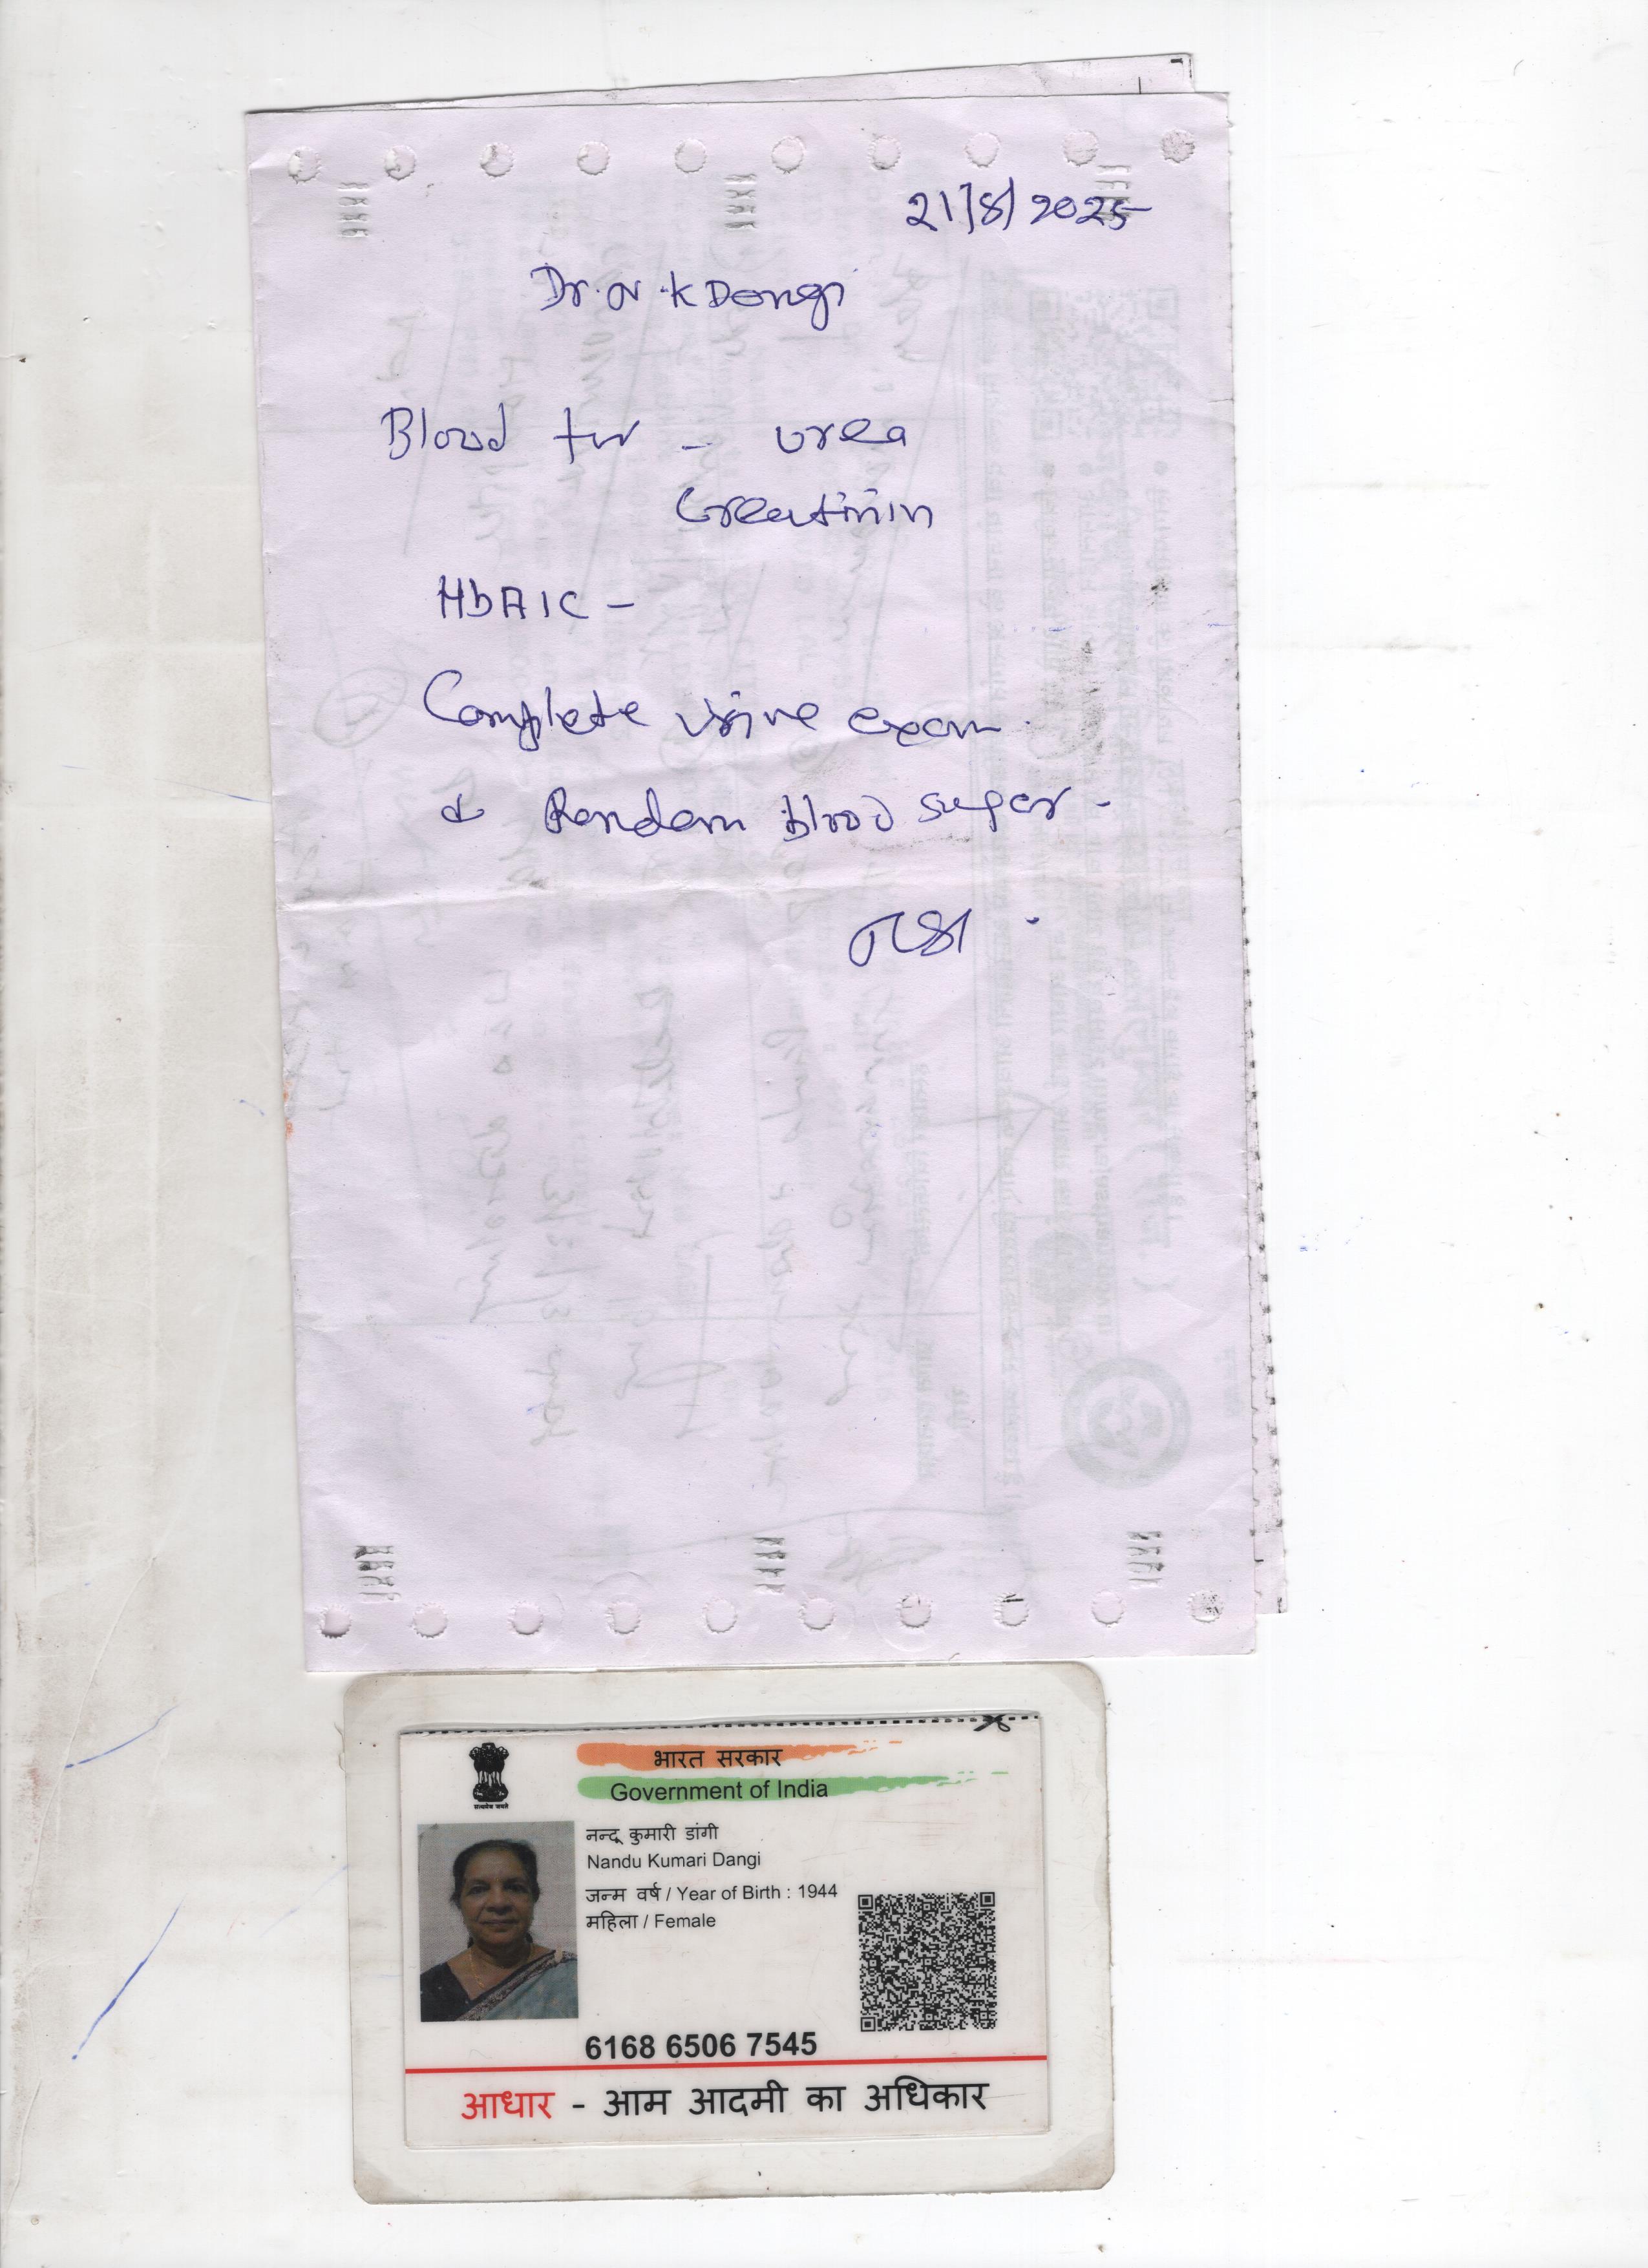 21/8/2025
Dr. N. K Dangi
Blood for - urea
Creatinin
HbA1C -
Complete urine exam.
& Random blood sugar -
भारत सरकार
Government of India
सत्यमेव जयते
नन्दू कुमारी डांगी
Nandu Kumari Dangi
जन्म वर्ष / Year of Birth : 1944
महिला / Female
6168 6506 7545
आधार - आम आदमी का अधिकार